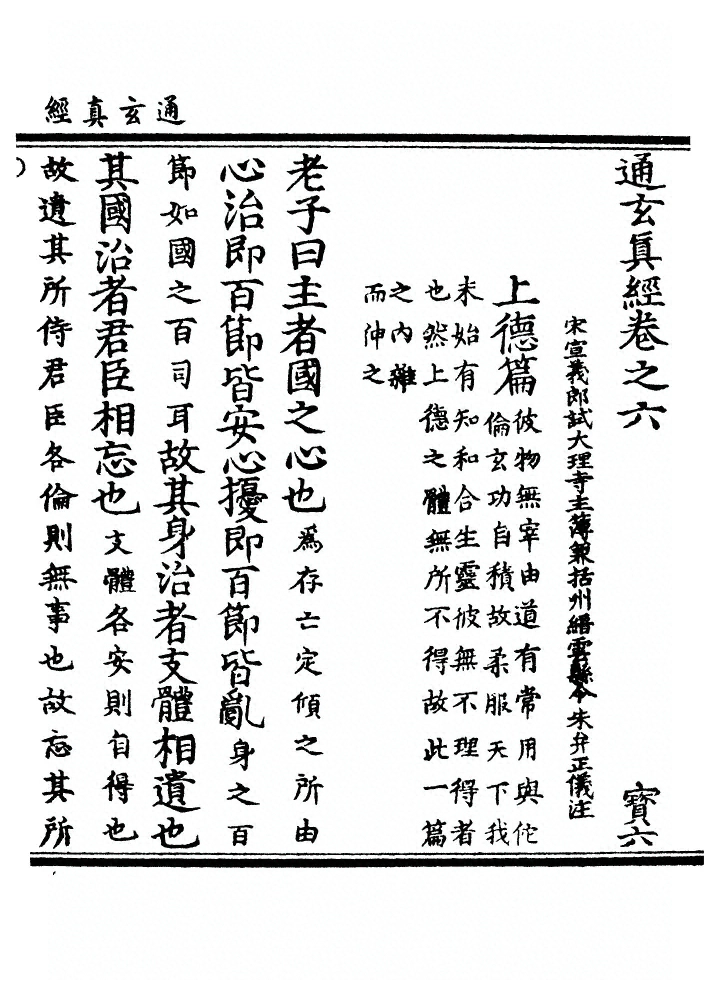 通玄真經
通玄真經卷之六 寶六
宋宣義郎試大理寺主簿兼括州縉雲縣令朱弁正儀注
上德篇 彼物無宰由道有常用與佗
倫玄功自積故柔服天下我
未始有知和合生靈彼無不理得者
也然上德之體無所不得故此一篇
之內雜
而伸之
老子曰主者國之心也爲存亡定傾之所由
心治即百節皆安心擾即百節皆亂身之百
節如國之百司耳故其身治者支體相遺也
其國治者君臣相忘也支體各安則自得也
故遺其所侍君臣各倫則無事也故忘其所